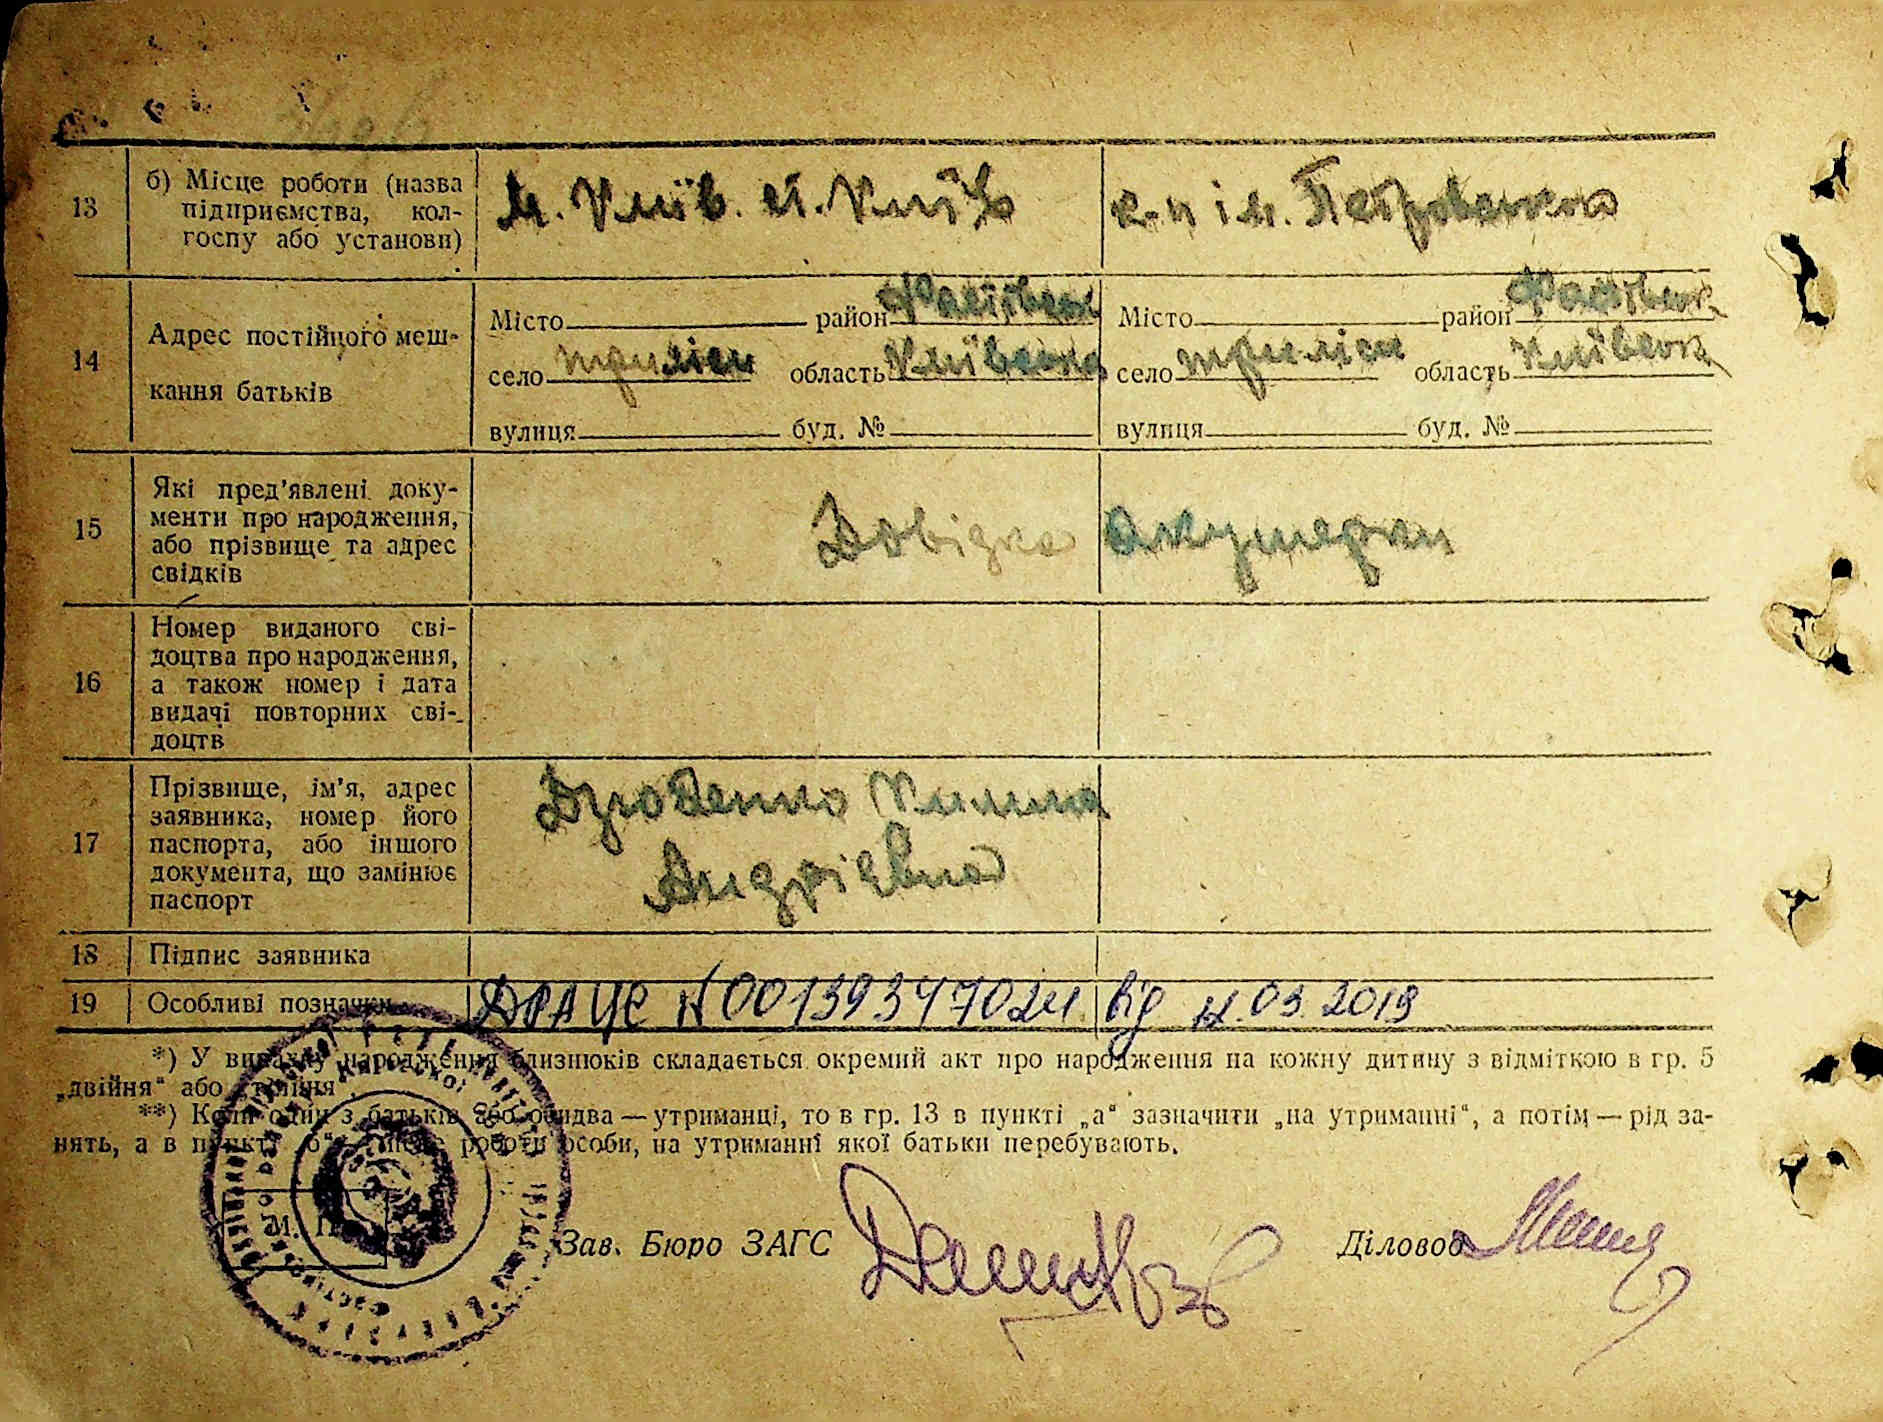 13
б) Місце роботи (назва
підприємства, кол-
госпу або установи)
м. Київ. ст. Київ
к-п ім. Петровського
14
Адрес постійного меш-
кання батьків
Місто район Фастівськ
село Триліси область Київська
вулиця буд. №
Місто район Фастівськ
село Триліси область Київськ
вулиця буд. №
15
Які пред'явлені доку-
менти про народження,
або прізвище та адрес
свідків
Довідка акушерки
16
Номер виданого сві-
доцтва про народження,
а також номер і дата
видачі повторних сві-
доцтв
17
Прізвище, ім'я, адрес
заявника, номер його
паспорта, або іншого
документа, що замінює
паспорт
Дзюбенко
Андріевна
18
Підпис заявника
19
Особливі позначки
ДРАЦС N 00139347024 від 12.03.2019
*) У випадку народження близнюків складається окремий акт про народження на кожну дитину з відміткою в гр. 5
„двійня“ або „трійня
**) Коли один з батьків або обидва — утриманці, то в гр. 13 в пункті „а“ зазначити „на утриманні“, а потім — рід за-
нять, а в пункті „б“ місце роботи особи, на утриманні якої батьки перебувають.
М. П.
Зав. Бюро ЗАГС
Діловод